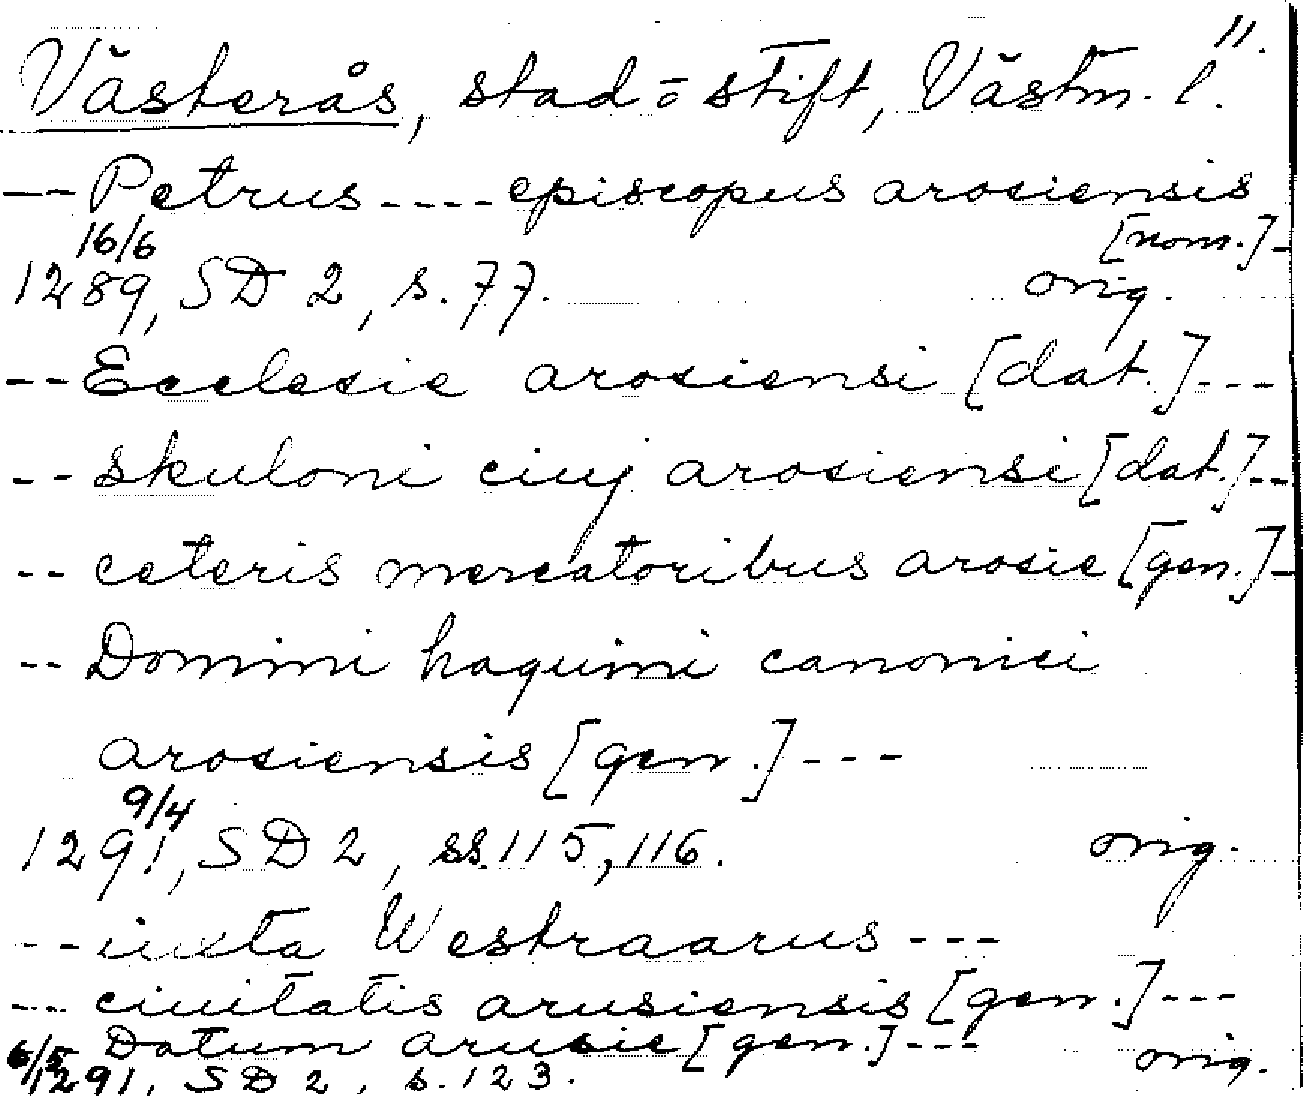 11.
Västerås, stad o stift, Västm. l.
-- Petrus ---- episcopus arosiensis
[nom.] -
16/6
1289, SD 2, s. 77. orig.
-- Ecclesie arosiensi [dat.] ---
-- skuloni ciuj arosiensi [dat.] --
-- ceteris mercatoribus arosie [gen.] -
-- Domini haquini canonici
arosiensis [gen.] ---
9/4
1291, SD 2, ss. 115, 116. orig.
-- iuxta Westraarus ---
--- ciuitatis arusiensis [gen.] ---
Datum arusie [gen.] ---
6/5 1291, SD 2, s. 123. orig.